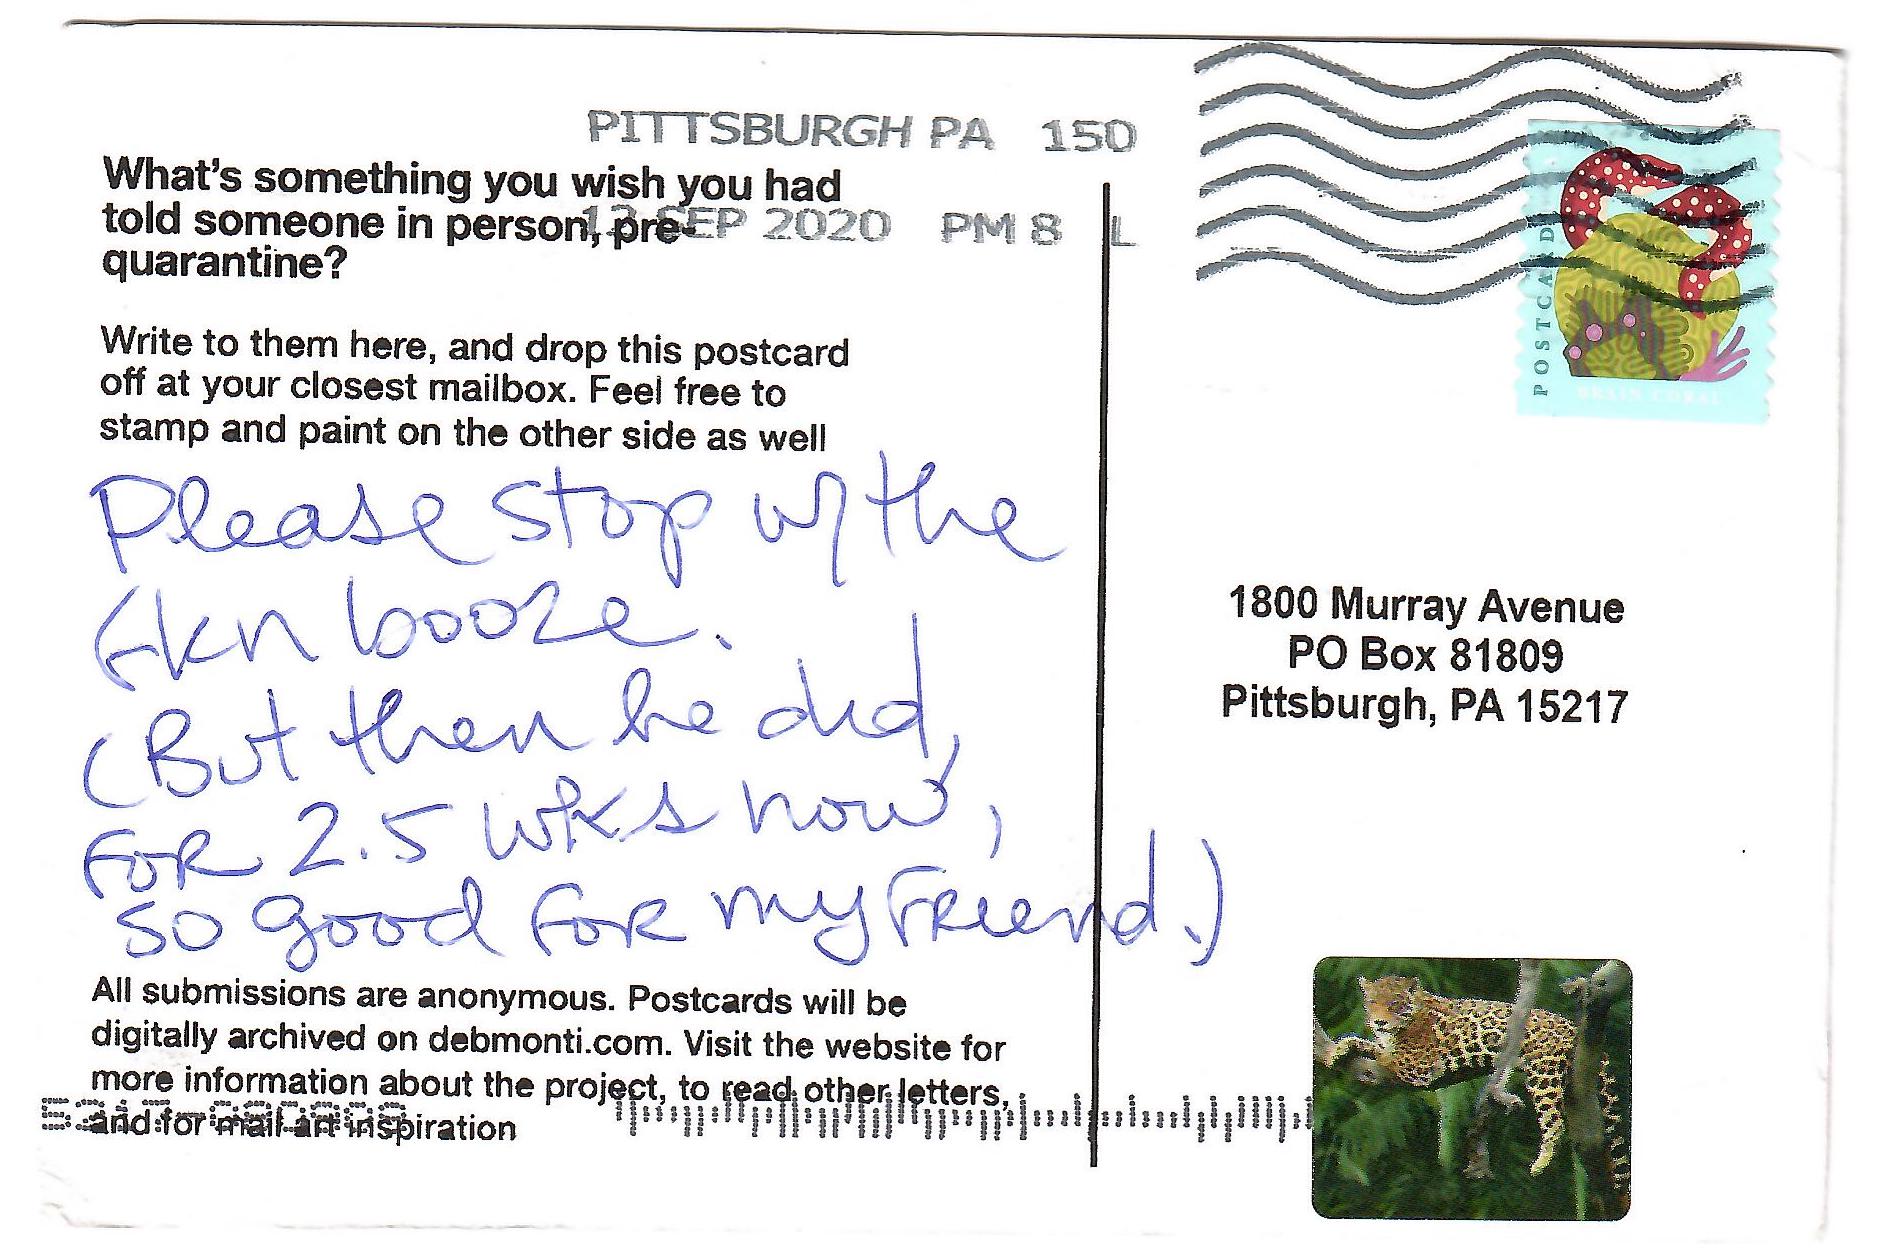 PITTSBURGH PA 150
SEP 2020 PM 8 L
What's something you wish you had
told someone in person, pre-
quarantine?
Write to them here, and drop this postcard
off at your closest mailbox. Feel free to
stamp and paint on the other side as well
Please stop w/ the
fkn booze.
(But then he did,
FOR 2.5 wks now,
so good FOR my FRiend.)
All submissions are anonymous. Postcards will be
digitally archived on debmonti.com. Visit the website for
more information about the project, to read other letters,
and for mail-art inspiration
POSTCARD
BRAIN CORAL
1800 Murray Avenue
PO Box 81809
Pittsburgh, PA 15217